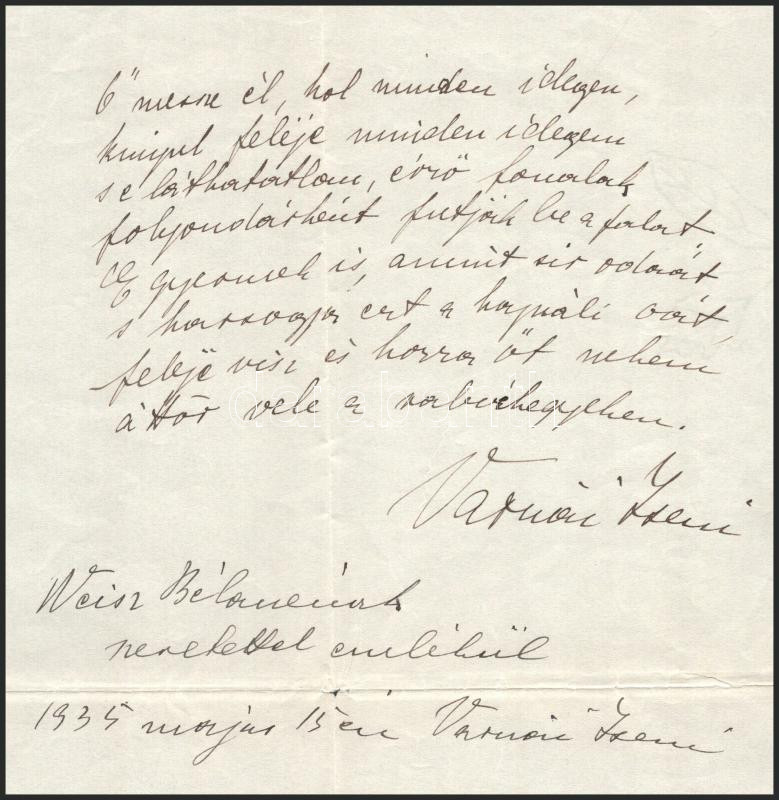 Ő messze él, hol minden idegen,
kinyul feléje minden idegem
s e láthatatlan, érző fonalak
folyondárként futják be a falat.
Egyemek is, amint sir odaát
s harsogja ezt a hajnáli oát,
feléje visz és hozza őt nekem
áttör vele a rabvéhegyeken.
Várnai Zseni
Weisz Bélanénak
szeretettel emlékül
1935 május 15én Várnai Zseni